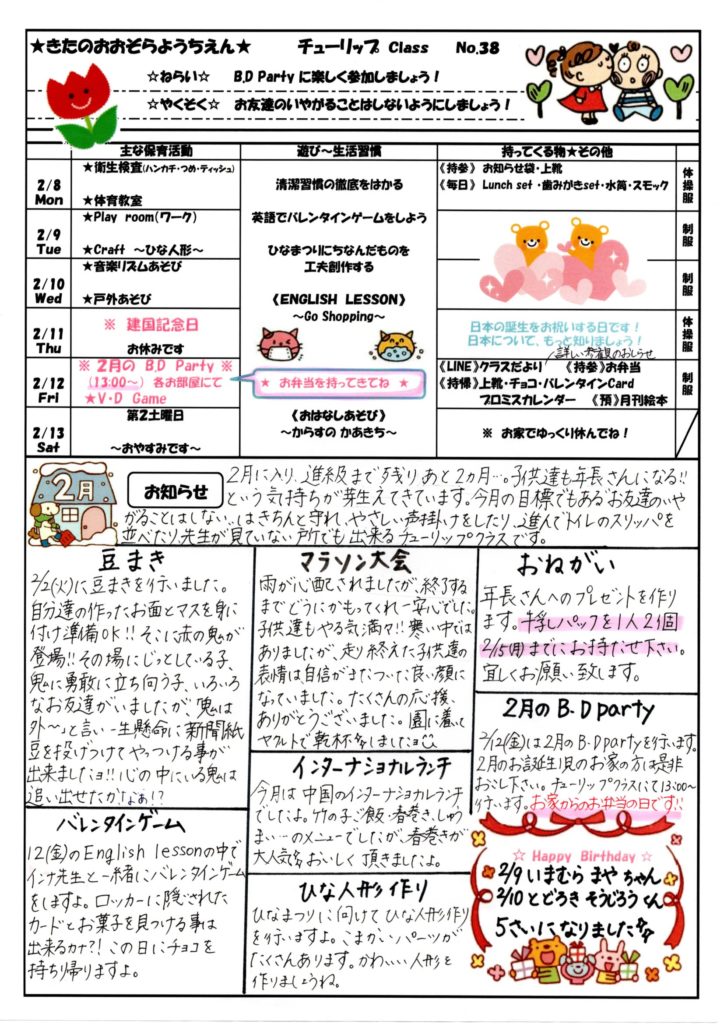 ★きたのおおぞらようちえん★　チューリップ Class　No.38
☆ねらい☆　B,D Party に楽しく参加しましょう！
☆やくそく☆　お友達のいやがることはしないようにしましょう！
主な保育活動　遊び～生活習慣　持ってくる物★その他
2/8
Mon
★衛生検査(ハンカチ・つめ・ティッシュ)
★体育教室
清潔習慣の徹底をはかる
《持参》 お知らせ袋・上靴
《毎日》 Lunch set ・歯みがきset・水筒・スモック
体操服
2/9
Tue
★Play room(ワーク)
★Craft ～ひな人形～
英語でバレンタインゲームをしよう
ひなまつりにちなんだものを
工夫創作する
制服
2/10
Wed
★音楽リズムあそび
★戸外あそび
《ENGLISH LESSON》
～Go Shopping～
制服
2/11
Thu
※ 建国記念日
お休みです
日本の誕生をお祝いする日です！
日本について、もっと知りましょう！
体操服
2/12
Fri
※ 2月の B,D Party ※
(13:00～) 各お部屋にて
★V・D Game
★ お弁当を持ってきてね ★
詳しい参観のおしらせ
《LINE》クラスだより　《持参》お弁当
《持帰》上靴・チョコ・バレンタインCard
プロミスカレンダー　《預》月刊絵本
制服
2/13
Sat
第2土曜日
～おやすみです～
《おはなしあそび》
～からすの かあきち～
※ お家でゆっくり休んでね！
2月
お知らせ
2月に入り、進級まで残りあと2カ月…。子供達も年長さんになる!!
という気持ちが芽生えてきています。今月の目標でもあるお友達のいや
がることはしない…はきちんと守れ、やさしい声掛けをしたり、進んでトイレのスリッパを
並べたり、先生が見ていない所でも出来るチューリップクラスです。
豆まき
2/2(火)に豆まきを行いました。
自分達の作ったお面とマスを身に
付け準備OK!! そこに赤の鬼が
登場!! その場にじっとしている子、
鬼に勇敢に立ち向う子、いろいろ
なお友達がいましたが、「鬼は
外～」と言い一生懸命に新聞紙
豆を投げつけてやっつける事が
出来ましたヨ!! 心の中にいる鬼は
追い出せたかなあ!?
バレンタインゲーム
12(金)のEnglish lessonの中で
インナ先生と一緒にバレンタインゲーム
をしますよ。ロッカーに隠された
カードとお菓子を見つける事は
出来るカナ?! この日にチョコを
持ち帰りますよ。
マラソン大会
雨が心配されましたが、終了する
までどうにかもってくれ一安心でした。
子供達もやる気満々!! 寒い中では
ありましたが、走り終えた子供達の
表情は自信がまたついた良い顔に
なっていました。たくさんの応援、
ありがとうございました。園に着いて
ヤクルトで乾杯しましたヨ
インターナショナルランチ
今月は中国のインターナショナルランチ
でしたよ。竹の子ご飯・春巻き、しゅう
まい…のメニューでしたが、春巻きが
大人気おいしく頂きましたよ。
ひな人形作り
ひなまつりに向けてひな人形作り
を行いますよ。こまかいパーツが
たくさんあります。かわいい人形を
作りましょうね。
おねがい
年長さんへのプレゼントを作り
ます。牛乳パックを1人2個
2/15(月)までにお持ち下さい。
宜しくお願い致します。
2月のB・D party
2/12(金)は2月のB・D partyを行います。
2月のお誕生児のお家の方は是非
お越し下さい。チューリップクラスにて13:00～
行います。お家からのお弁当の日です!!
☆ Happy Birthday ☆
2/9 いまむら まや ちゃん
2/10 とどろき そうじろう くん
5さいになりました